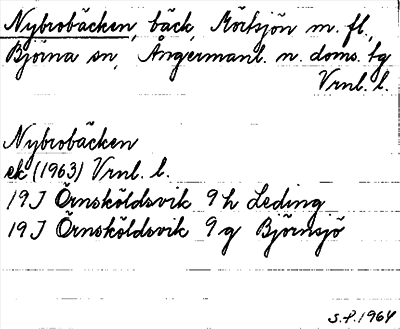 Nybrobäcken, bäck, Mörtsjön m. fl.,
Björna sn, Ångermanl. n. doms. tg
Vrnl. l.
Nybrobäcken
ek (1963) Vrnl. l.
19 J Örnsköldsvik 9 h Leding
19 J Örnsköldsvik 9 g Björnsjö
S.F. 1964